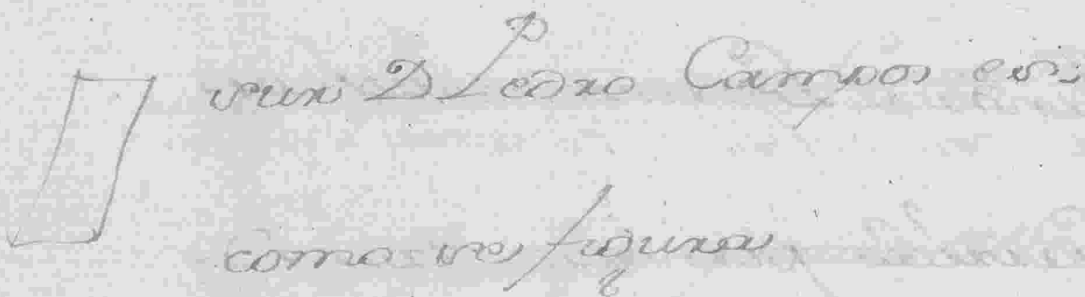 D Pedro Campos
como se figura